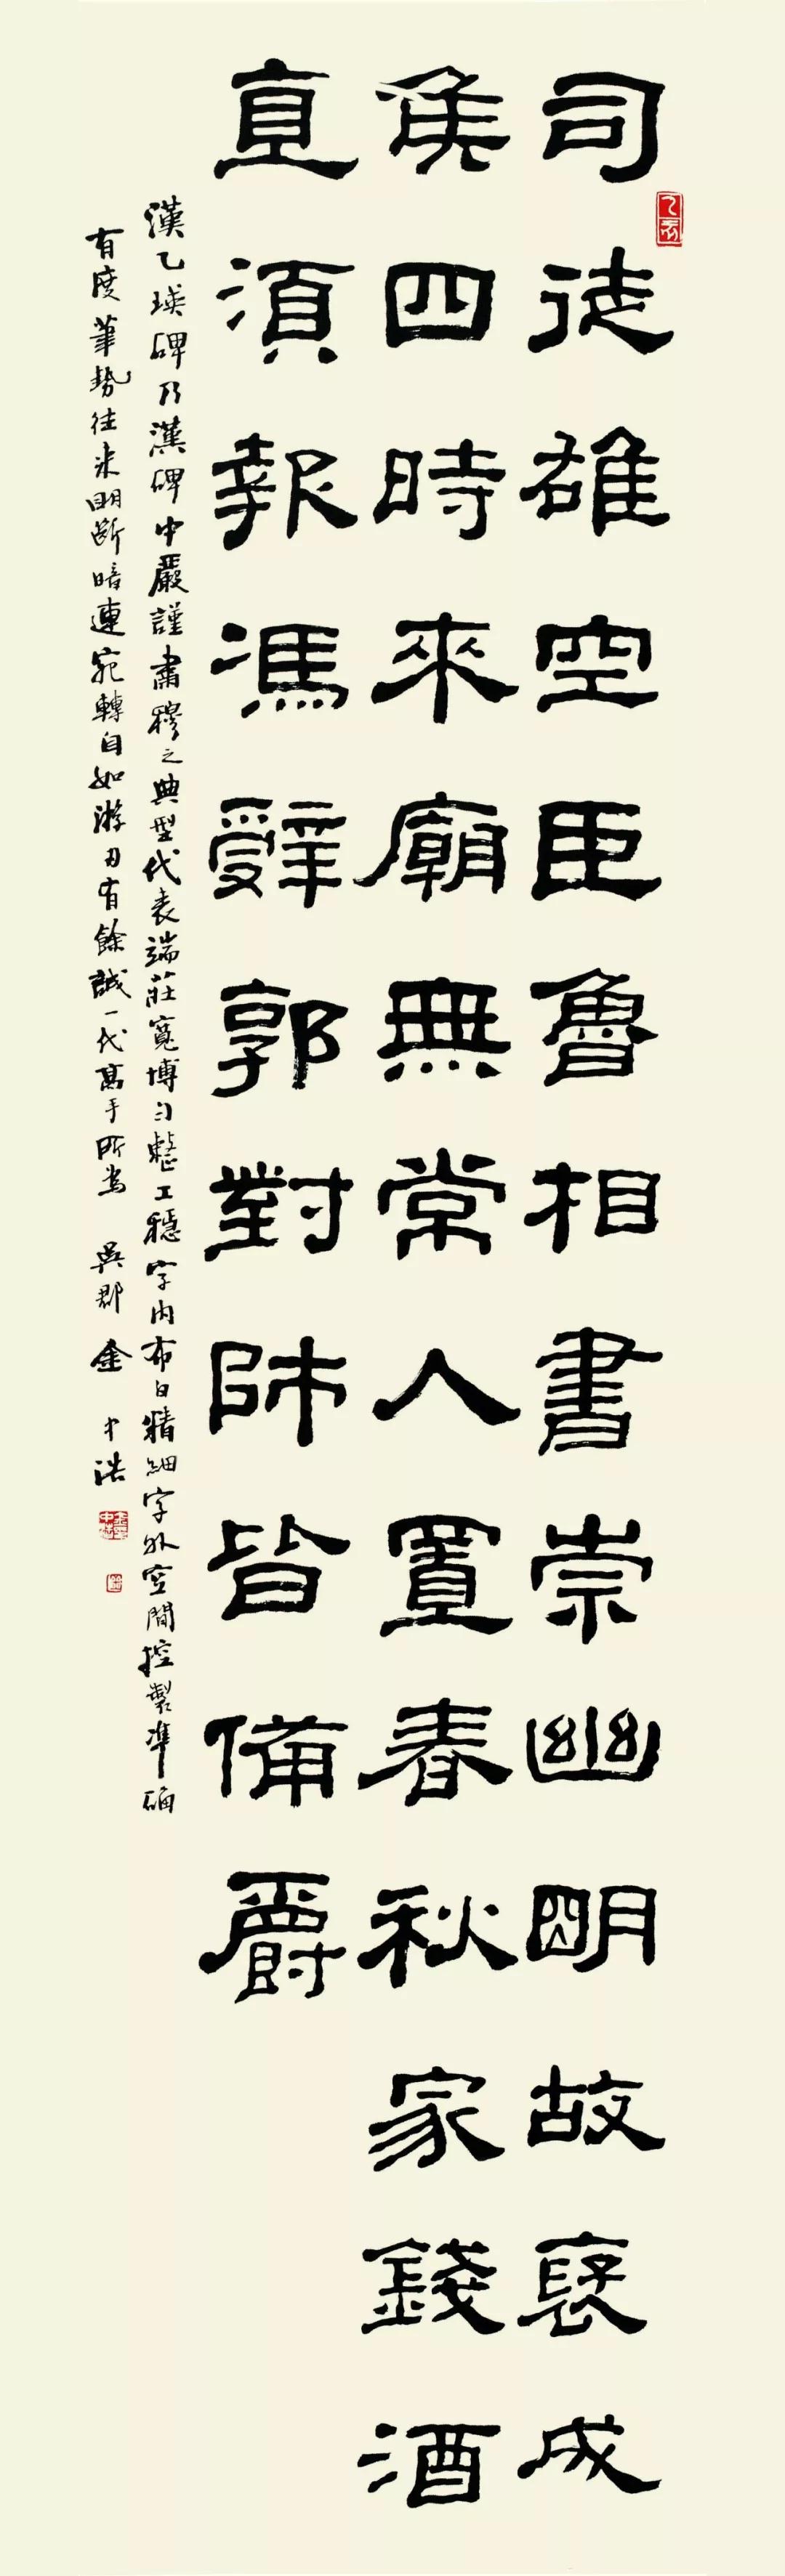 司徒雄空臣魯相書崇幽明故褒成
侯四時來廟無常人置春秋家錢酒
直須報馮辭郭對師皆備爵
漢乙瑛碑乃漢碑中嚴謹肅穆之典型代表端莊寬博勻整工穩字內布白精細字外空間控製準確
有度筆勢往來明斷暗連宛轉自如游刃有餘誠一代高手所為 吳郡 金中浩